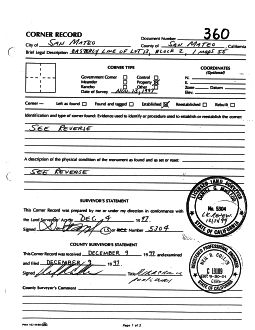 360
CORNER RECORD Document Number
City of SAN MATEO County of SAN MATEO California
Brief Legal Description EASTERLY LINE OF LOT 13, BLOCK 2, 1 MAPS 55
CORNER TYPE
COORDINATES
(Optional)
Government Corner Control
Meander Property
Rancho Other
Date of Survey NOV. 15, 1997
N.
E.
Zone Datum
Elev.
Corner — Left as found Found and tagged Established Reestablished Rebuilt
Identification and type of corner found: Evidence used to identify or procedure used to establish or reestablish the corner:
SEE REVERSE
A description of the physical condition of the monument as found and as set or reset:
SEE REVERSE
SURVEYOR'S STATEMENT
This Corner Record was prepared by me or under my direction in conformance with
the Land Surveyors' Act on DEC 4 1997
Signed Number 5304
LICENSED LAND SURVEYOR
No. 5304
STATE OF CALIFORNIA
COUNTY SURVEYOR'S STATEMENT
This Corner Record was received DECEMBER 9 1997 and examined
and filed DECEMBER 1997
Signed Title
REGISTERED PROFESSIONAL ENGINEER
STATE OF CALIFORNIA
County Surveyor's Comment
Page 1 of 2